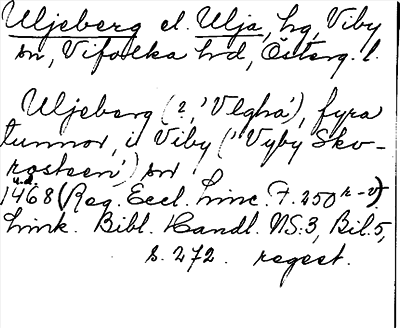 Uljeberg el. Ulja, hg, Viby
sn, Vifolka hd, Österg. l.
Uljeberg (?, 'Vlgha'), fyra
tunnor, i Viby ('Vyby Sko-
rosteen') sn
u.d.
1468 (Reg. Eccl. Linc. F. 250 r-v).
Link. Bibl. Handl. NS:3, Bil. 5,
s. 272. regest.